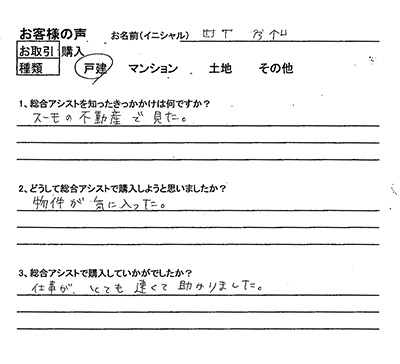 お客様の声 お名前(イニシャル)
お取引 購入
種類 戸建 マンション 土地 その他
1、総合アシストを知ったきっかかけは何ですか?
スーモの不動産で見た。
2、どうして総合アシストで購入しようと思いましたか?
物件が気に入った。
3、総合アシストで購入していかがでしたか?
仕事が、とても速くて助かりました。